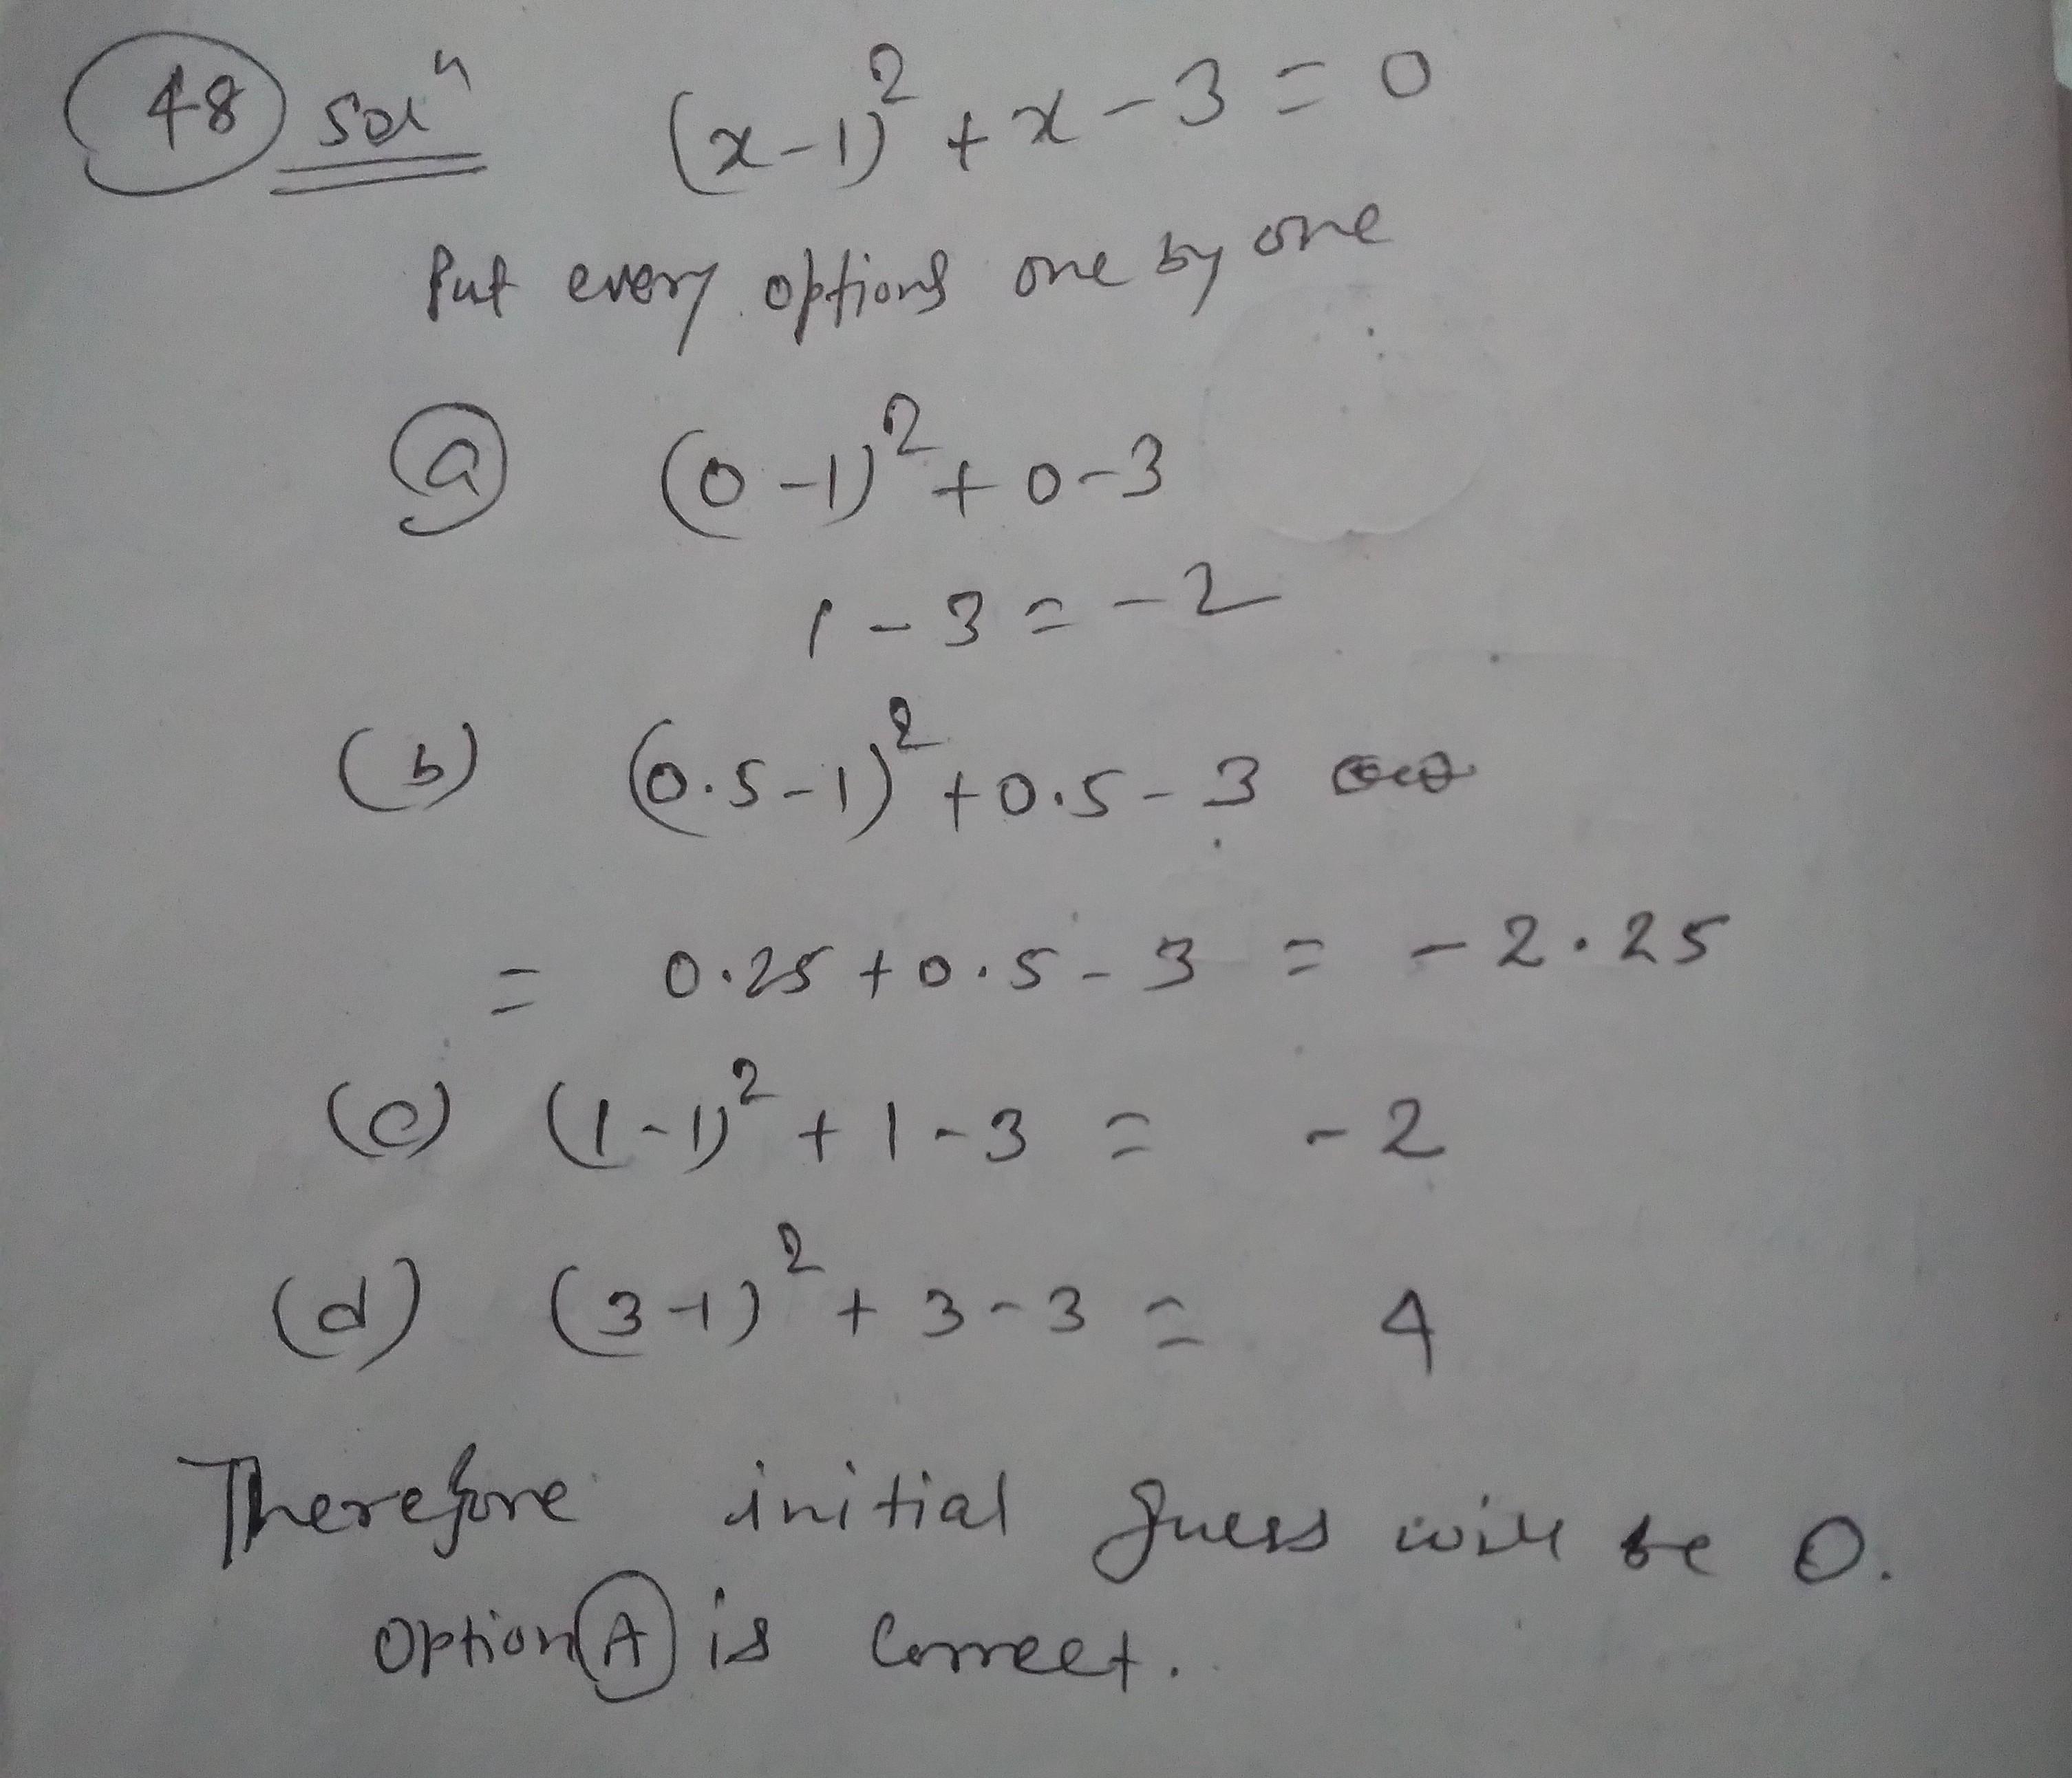 48 Solⁿ (x-1)² + x - 3 = 0
Put every options one by one
(a) (0-1)² + 0-3
1 - 3 = -2
(b) (0.5-1)² + 0.5 - 3
= 0.25 + 0.5 - 3 = -2.25
(c) (1-1)² + 1-3 = -2
(d) (3-1)² + 3-3 = 4
Therefore initial guess will be 0.
Option (A) is Correct.